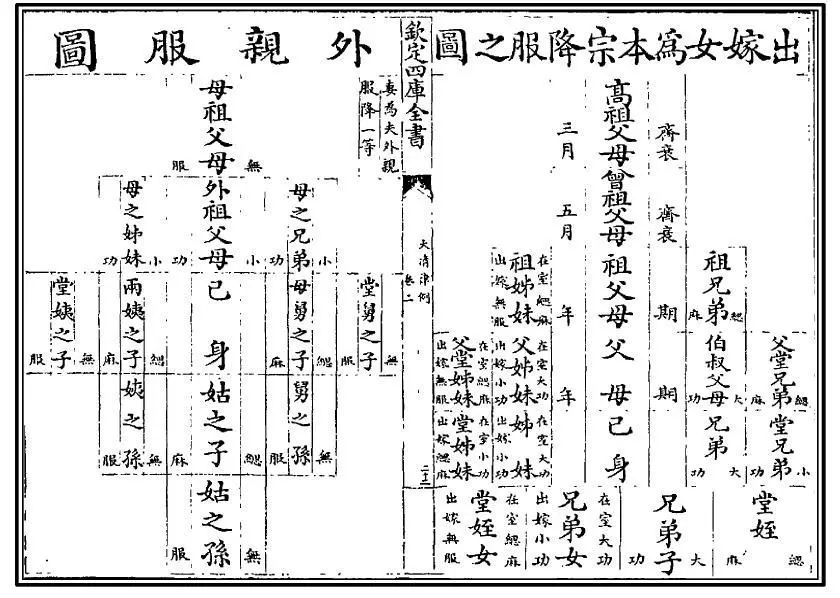 出嫁女爲本宗降服之圖
高祖父母
齊衰
三月
曾祖父母
齊衰
五月
祖兄弟
緦麻
祖父母
期年
祖姊妹
在室緦麻
出嫁無服
父堂兄弟
緦麻
伯叔父母
大功
父母
期年
父姊妹
在室大功
出嫁小功
父堂姊妹
在室緦麻
出嫁無服
堂兄弟
小功
兄弟
大功
己身
姊妹
在室大功
出嫁小功
堂姊妹
在室小功
出嫁緦麻
堂姪
緦麻
兄弟子
大功
兄弟女
在室大功
出嫁小功
堂姪女
在室緦麻
出嫁無服
欽定四庫全書
大清律例
卷二
外親服圖
妻為夫外親
服降一等
母祖父母
無服
母之兄弟
小功
外祖父母
小功
母之姊妹
小功
堂舅之子
無服
母舅之子
緦麻
己身
兩姨之子
緦麻
堂姨之子
無服
舅之孫
無服
姑之子
緦麻
姨之孫
無服
姑之孫
無服